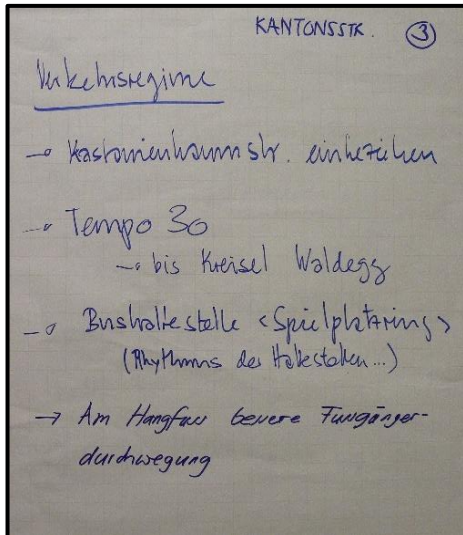 KANTONSSTR. ③
Verkehrsregime
→ Kastanienbaumstr. einbeziehen
→ Tempo 30
→ bis Kreisel Waldegg
→ Bushaltestelle <Spielplatzring>
(Rhythmus der Haltestellen...)
→ Am Hangfuss bessere Fussgänger-
durchwegung